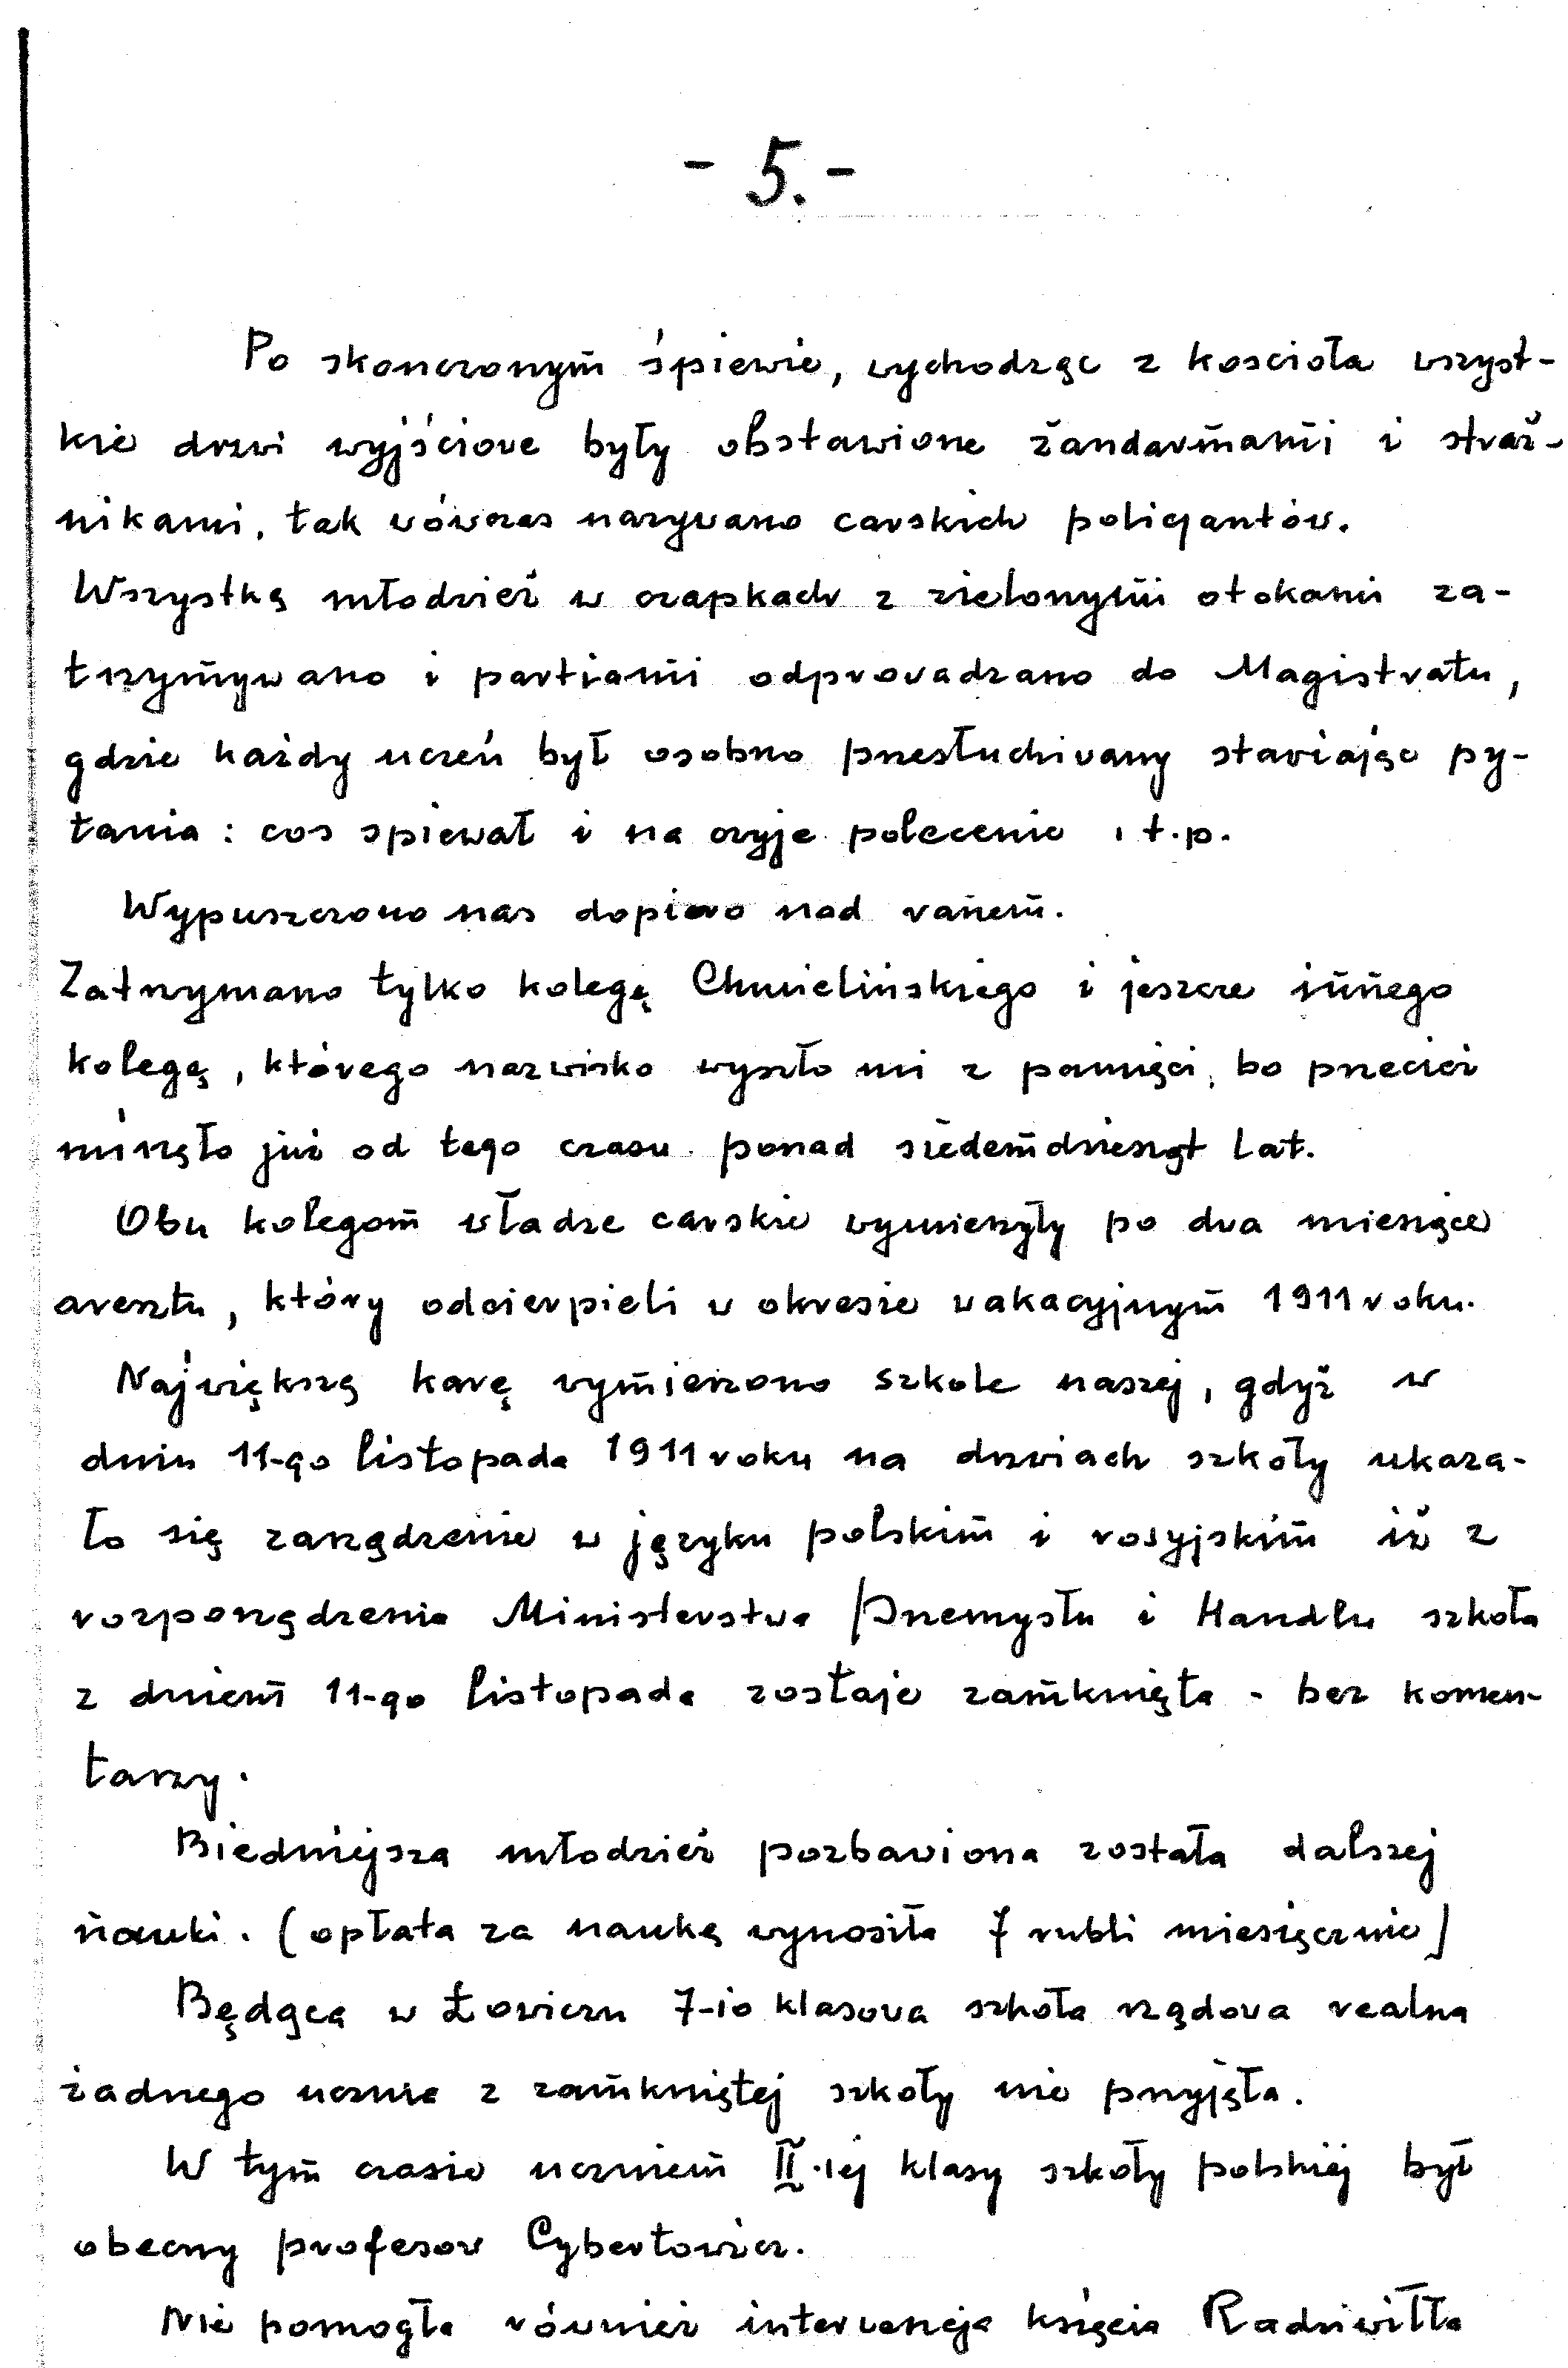 - 5. -
Po skonczonym śpiewie, wychodząc z koscioła wszyst-
kie drzwi wyjściowe były obstawione żandarmami i straż-
nikami, tak wówczas nazywano carskich policjantów.
Wszystką młodzież w czapkach z zielonymi otokami za-
trzymywano i partiami odprowadzano do Magistratu,
gdzie każdy uczeń był osobno przesłuchiwany stawiając py-
tania : cos spiewał i na czyje polecenie i t.p.
Wypuszczono nas dopiero nad ranem.
Zatrzymano tylko kolegę Chmielińskiego i jeszcze innego
kolegę, którego nazwisko wyszło mi z pamięci, bo przecież
minęło już od tego czasu ponad siedemdziesiąt lat.
Obu kolegom władze carskie wymierzyły po dwa miesiące
aresztu, który odcierpieli w okresie wakacyjnym 1911 roku.
Największą karę wymierzono szkole naszej, gdyż w
dniu 11-go listopada 1911 roku na drzwiach szkoły ukaza-
ło się zarządzenie w języku polskim i rosyjskim iż z
rozporządzenia Ministerstwa Przemysłu i Handlu szkoła
z dniem 11-go listopada zostaje zamknięta - bez komen-
tarzy.
Biedniejsza młodzież pozbawiona została dalszej
nauki. (opłata za naukę wynosiła 7 rubli miesięcznie)
Będąca w Łowiczu 7-io klasowa szkoła rządowa realna
żadnego ucznia z zamkniętej szkoły nie przyjęła.
W tym czasie uczniem II-iej klasy szkoły polskiej był
obecny profesor Cybertowicz.
Nie pomogła również interwencja księcia Radziwiłła